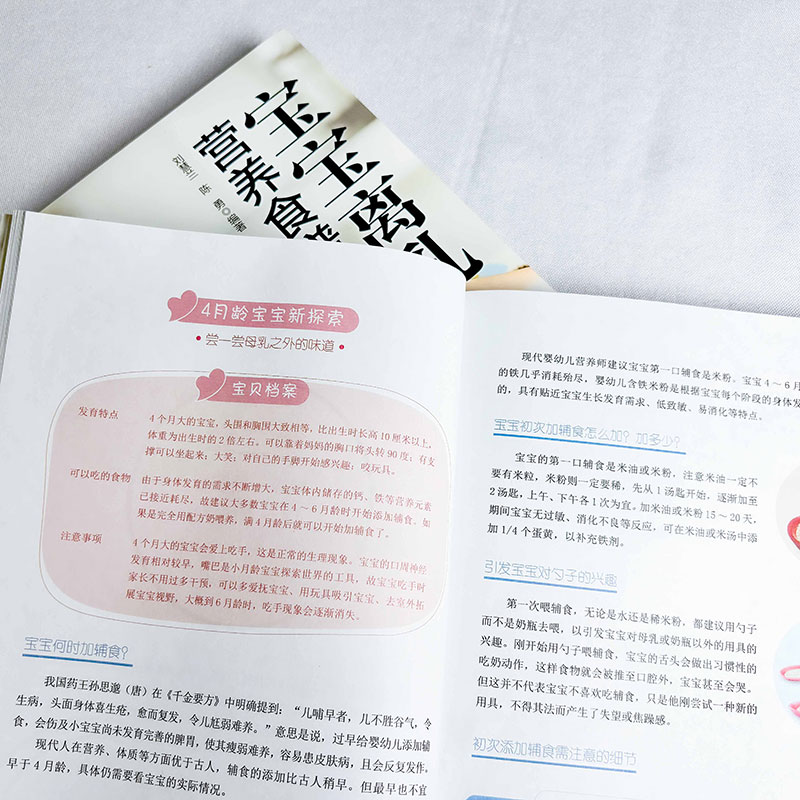 宝宝离乳
营养食谱
刘慧兰 陈勇◎编著
4月龄宝宝新探索
• 尝一尝母乳之外的味道 •
宝贝档案
发育特点
4个月大的宝宝，头围和胸围大致相等，比出生时长高10厘米以上，
体重为出生时的2倍左右。可以靠着妈妈的胸口将头转90度；有支
撑可以坐起来；大笑；对自己的手脚开始感兴趣；咬玩具。
可以吃的食物
由于身体发育的需求不断增大，宝宝体内储存的钙、铁等营养元素
已接近耗尽，故建议大多数宝宝在4～6月龄时开始添加辅食。如
果是完全用配方奶喂养，满4月龄后就可以开始加辅食了。
注意事项
4个月大的宝宝会爱上吃手，这是正常的生理现象。宝宝的口周神经
发育相对较早，嘴巴是小月龄宝宝探索世界的工具，故宝宝吃手时
家长不用过多干预，可以多爱抚宝宝、用玩具吸引宝宝、去室外拓
展宝宝视野，大概到6月龄时，吃手现象会逐渐消失。
宝宝何时加辅食？
我国药王孙思邈（唐）在《千金要方》中明确提到：“儿哺早者，儿不胜谷气，令
生病，头面身体喜生疮，愈而复发，令儿尪弱难养。”意思是说，过早给婴幼儿添加辅
食，会伤及小宝宝尚未发育完善的脾胃，使其瘦弱难养，容易患皮肤病，且会反复发作。
现代人在营养、体质等方面优于古人，辅食的添加比古人稍早。但最早也不宜
早于4月龄，具体仍需要看宝宝的实际情况。
现代婴幼儿营养师建议宝宝第一口辅食是米粉。宝宝4～6月
的铁几乎消耗殆尽，婴幼儿含铁米粉是根据宝宝每个阶段的身体发
的，具有贴近宝宝生长发育需求、低致敏、易消化等特点。
宝宝初次加辅食怎么加？加多少？
宝宝的第一口辅食是米油或米粉，注意米油一定不
要有米粒，米粉则一定要稀，先从1汤匙开始，逐渐加至
2汤匙，上午、下午各1次为宜。加米油或米粉15～20天，
期间宝宝无过敏、消化不良等反应，可在米油或米汤中添
加1/4个蛋黄，以补充铁剂。
引发宝宝对勺子的兴趣
第一次喂辅食，无论是水还是稀米粉，都建议用勺子
而不是奶瓶去喂，以引发宝宝对母乳或奶瓶以外的用具的
兴趣。刚开始用勺子喂辅食，宝宝的舌头会做出习惯性的
吃奶动作，这样食物就会被推至口腔外，宝宝甚至会哭。
但这并不代表宝宝不喜欢吃辅食，只是他刚尝试一种新的
用具，不得其法而产生了失望或焦躁感。
初次添加辅食需注意的细节